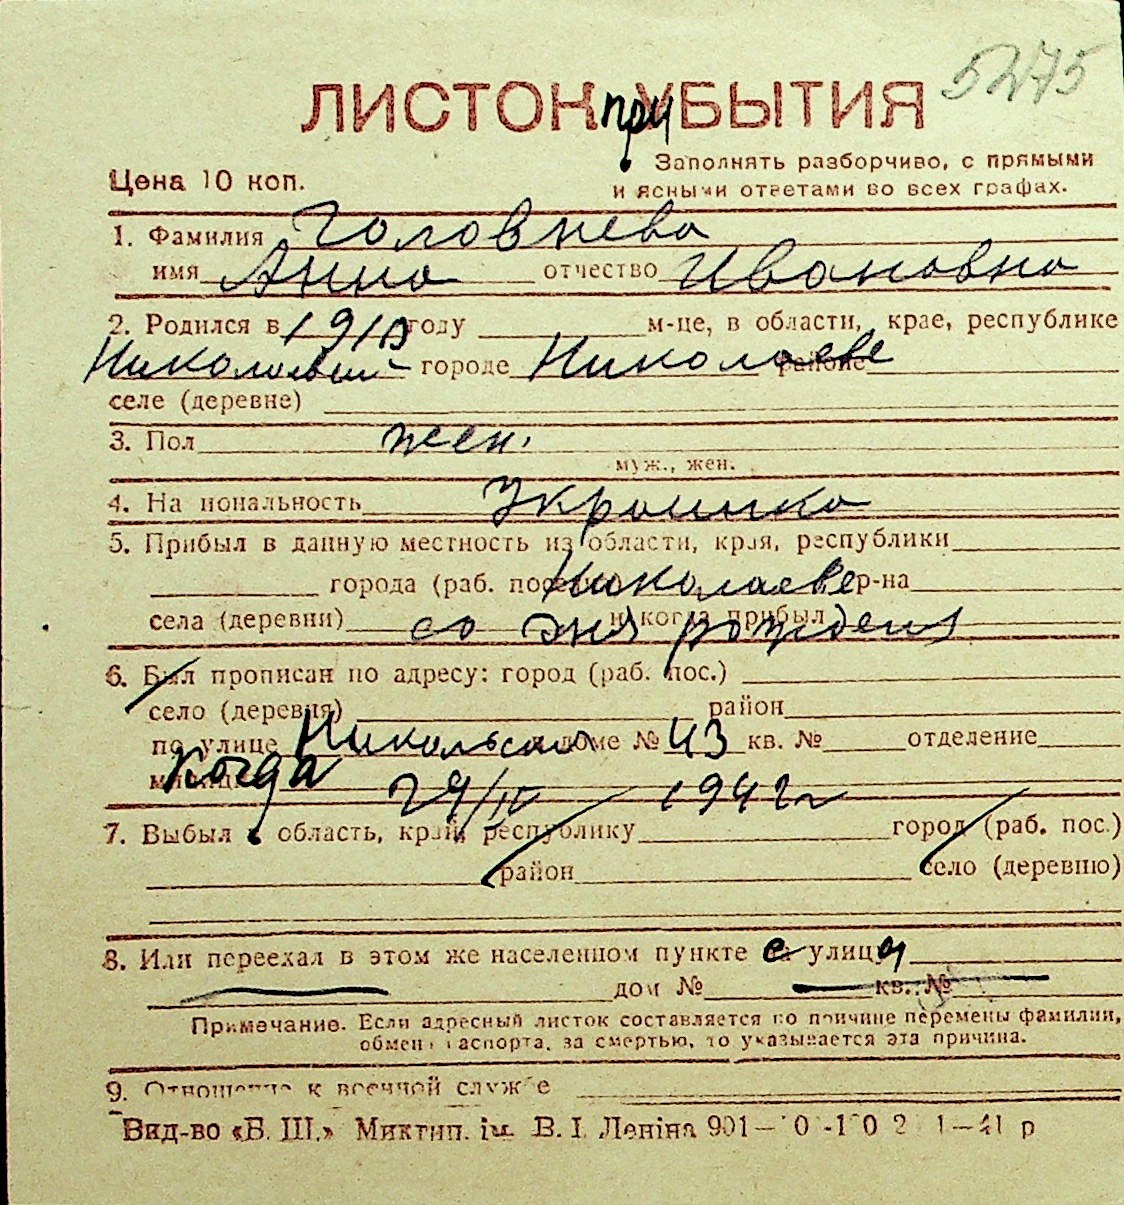 5275
ЛИСТОК при УБЫТИЯ
Заполнять разборчиво, с прямыми
Цена 10 коп. и ясными ответами во всех графах.
1. Фамилия Головнева
имя Анна отчество Ивановна
2. Родился в 1910 году м-це, в области, крае, республике
городе Николаеве районе
селе (деревне)
3. Пол жен.
муж., жен.
4. На иональность Украинка
5. Прибыл в данную местность из области, края, республики
города (раб. Николаеве р-на
села (деревни) со дня рожденя и когда прибыл
6. Был прописан по адресу: город (раб. пос.)
село (деревня) район
по улице Никольская доме № 43 кв. № отделение
когда 29/IV 1942 г
7. Выбыл в область, край, республику город (раб. пос.)
район село (деревню)
8. Или переехал в этом же населенном пункте с улицы
дом № кв. №
Примечание. Если адресный листок составляется по причине перемены фамилии,
обмена паспорта, за смертью, то указывается эта причина.
9. Отношение к военной службе
Вид-во «Б. Ш.» Миктип. ім. В. І. Леніна 901—